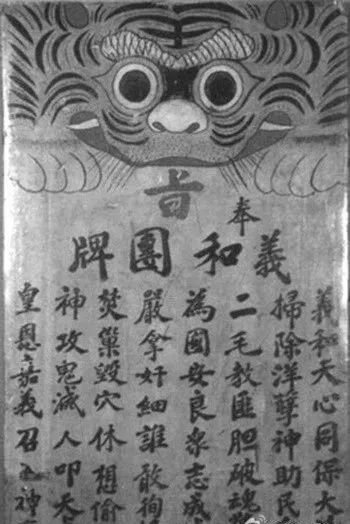 奉旨
義和團牌
義和天心同保大
掃除洋孽神助民
二毛教匪胆破魂
為國安良眾志成
嚴拿奸細誰敢徇
焚巢毀穴休想偷
神攻鬼滅人叩天
皇恩嘉義召五神